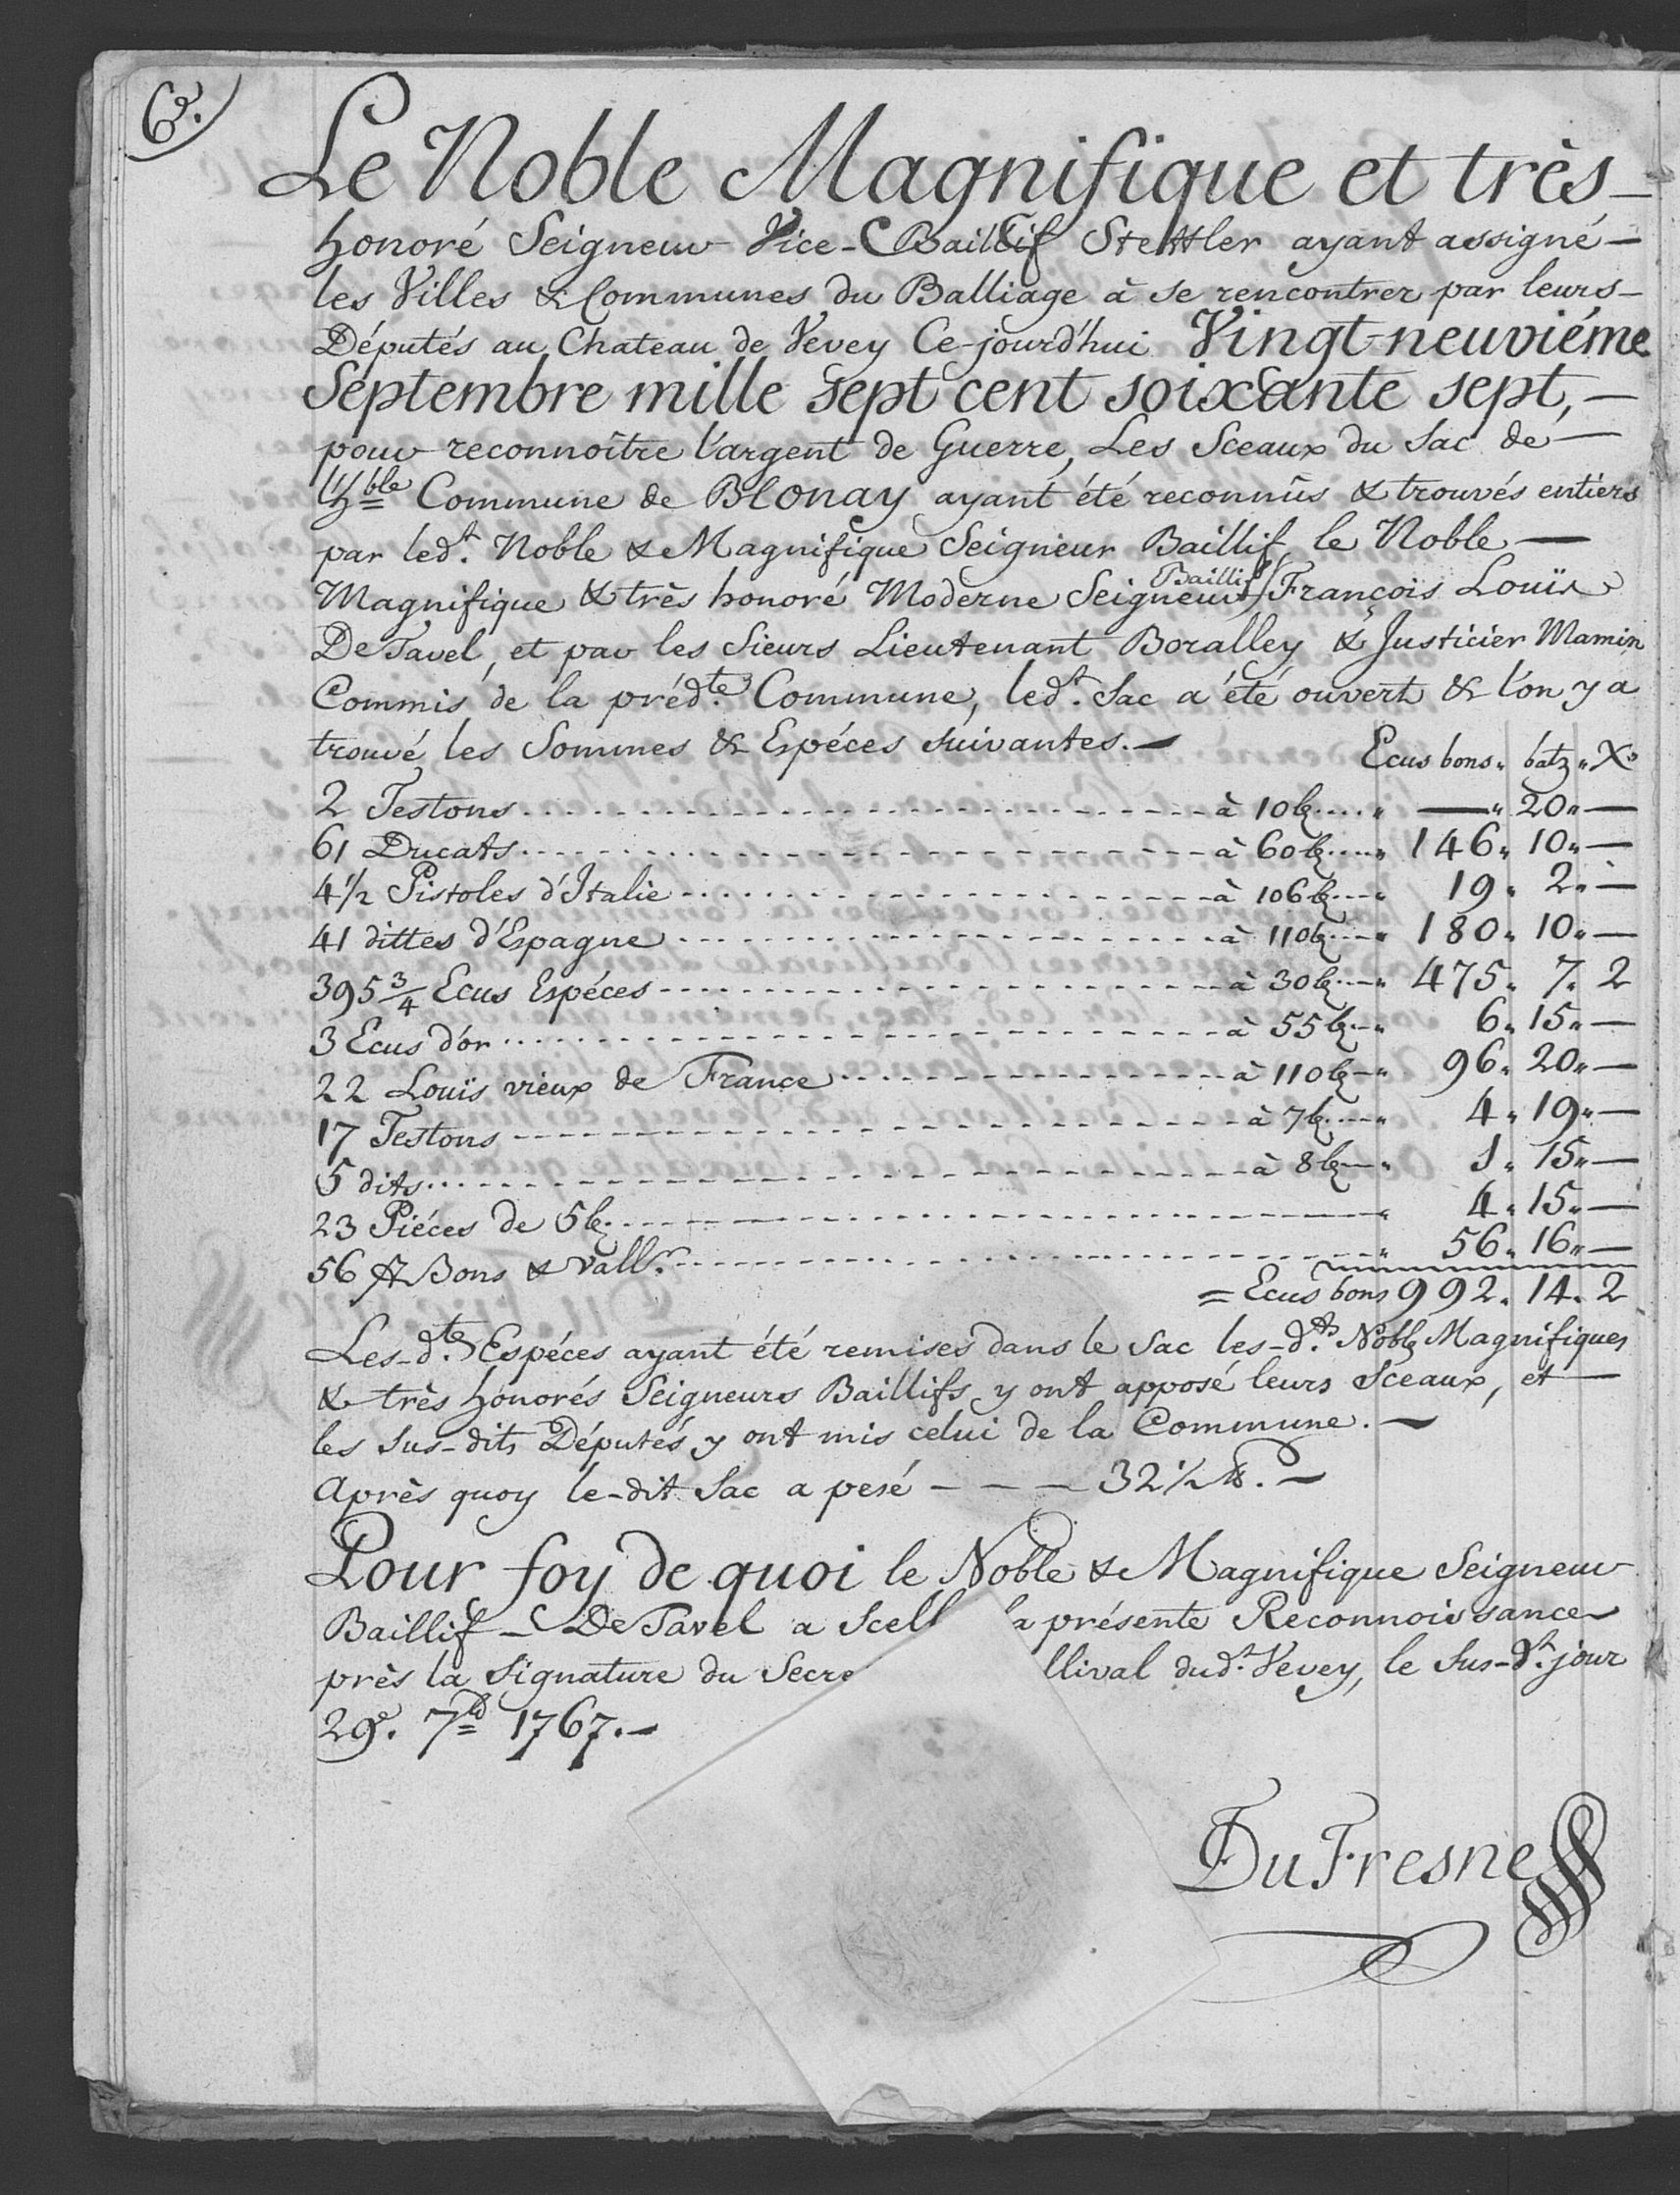 6e.
Le Noble Magnifique et très-
honoré Seigneur Vice-Baillif Stettler ayant assigné
les Villes & Communes du Balliage à se rencontrer par leurs
Députés au Chateau de Vevey Ce-jourd'hui Vingt-neuviéme
Septembre mille sept cent soixante sept,
pour reconnoître l'argent de Guerre, Les Sceaux du Sac de
l'hble Commune de Blonay ayant été reconnûs & trouvés entiers
par ledt. Noble & Magnifique Seigneur Baillif, le Noble
Magnifique & très honoré Moderne Seigneur Baillif François Louïs
De Tavel, et par les Sieurs Lieutenant Boralley & Justicier Mamin
Commis de la prédte. Commune, ledt. Sac a été ouvert & l'on y a
trouvé les Sommes & Espéces suivantes.
Ecus bons „ batz „ Xr
2 Testons à 10 bz „ — „ 20 „ —
61 Ducats à 60 bz „ 146 „ 10 „ —
4 1/2 Pistoles d'Italie à 106 bz „ 19 „ 2 „ —
41 dittes d'Espagne à 110 bz „ 180 „ 10 „ —
395 3/4 Ecus Espéces à 30 bz „ 475 „ 7 „ 2
3 Ecus d'or à 55 bz „ 6 „ 15 „ —
22 Louïs vieux de France à 110 bz „ 96 „ 20 „ —
17 Testons à 7 bz „ 4 „ 19 „ —
5 dits à 8 bz „ 1 „ 15 „ —
23 Piéces de 5 bz „ 4 „ 15 „ —
56 Bons & vallr. „ 56 „ 16 „ —
= Ecus bons 992 „ 14 „ 2
Les-dtes. Espéces ayant été remises dans le Sac les-dts. Nobls Magnifiques
& très honorés Seigneurs Baillifs y ont apposé leurs Sceaux, et
les sus-dits Députés y ont mis celui de la Commune.
Après quoy le-dit Sac a pesé - - - 32 1/2 ℔.
Pour foy de quoi le Noble & Magnifique Seigneur
Baillif De Tavel a Scell a présente Reconnoissance
près la Signature du Secre llival dudt. Vevey, le Sus-dt. jour
29e. 7b 1767.
DuFresne